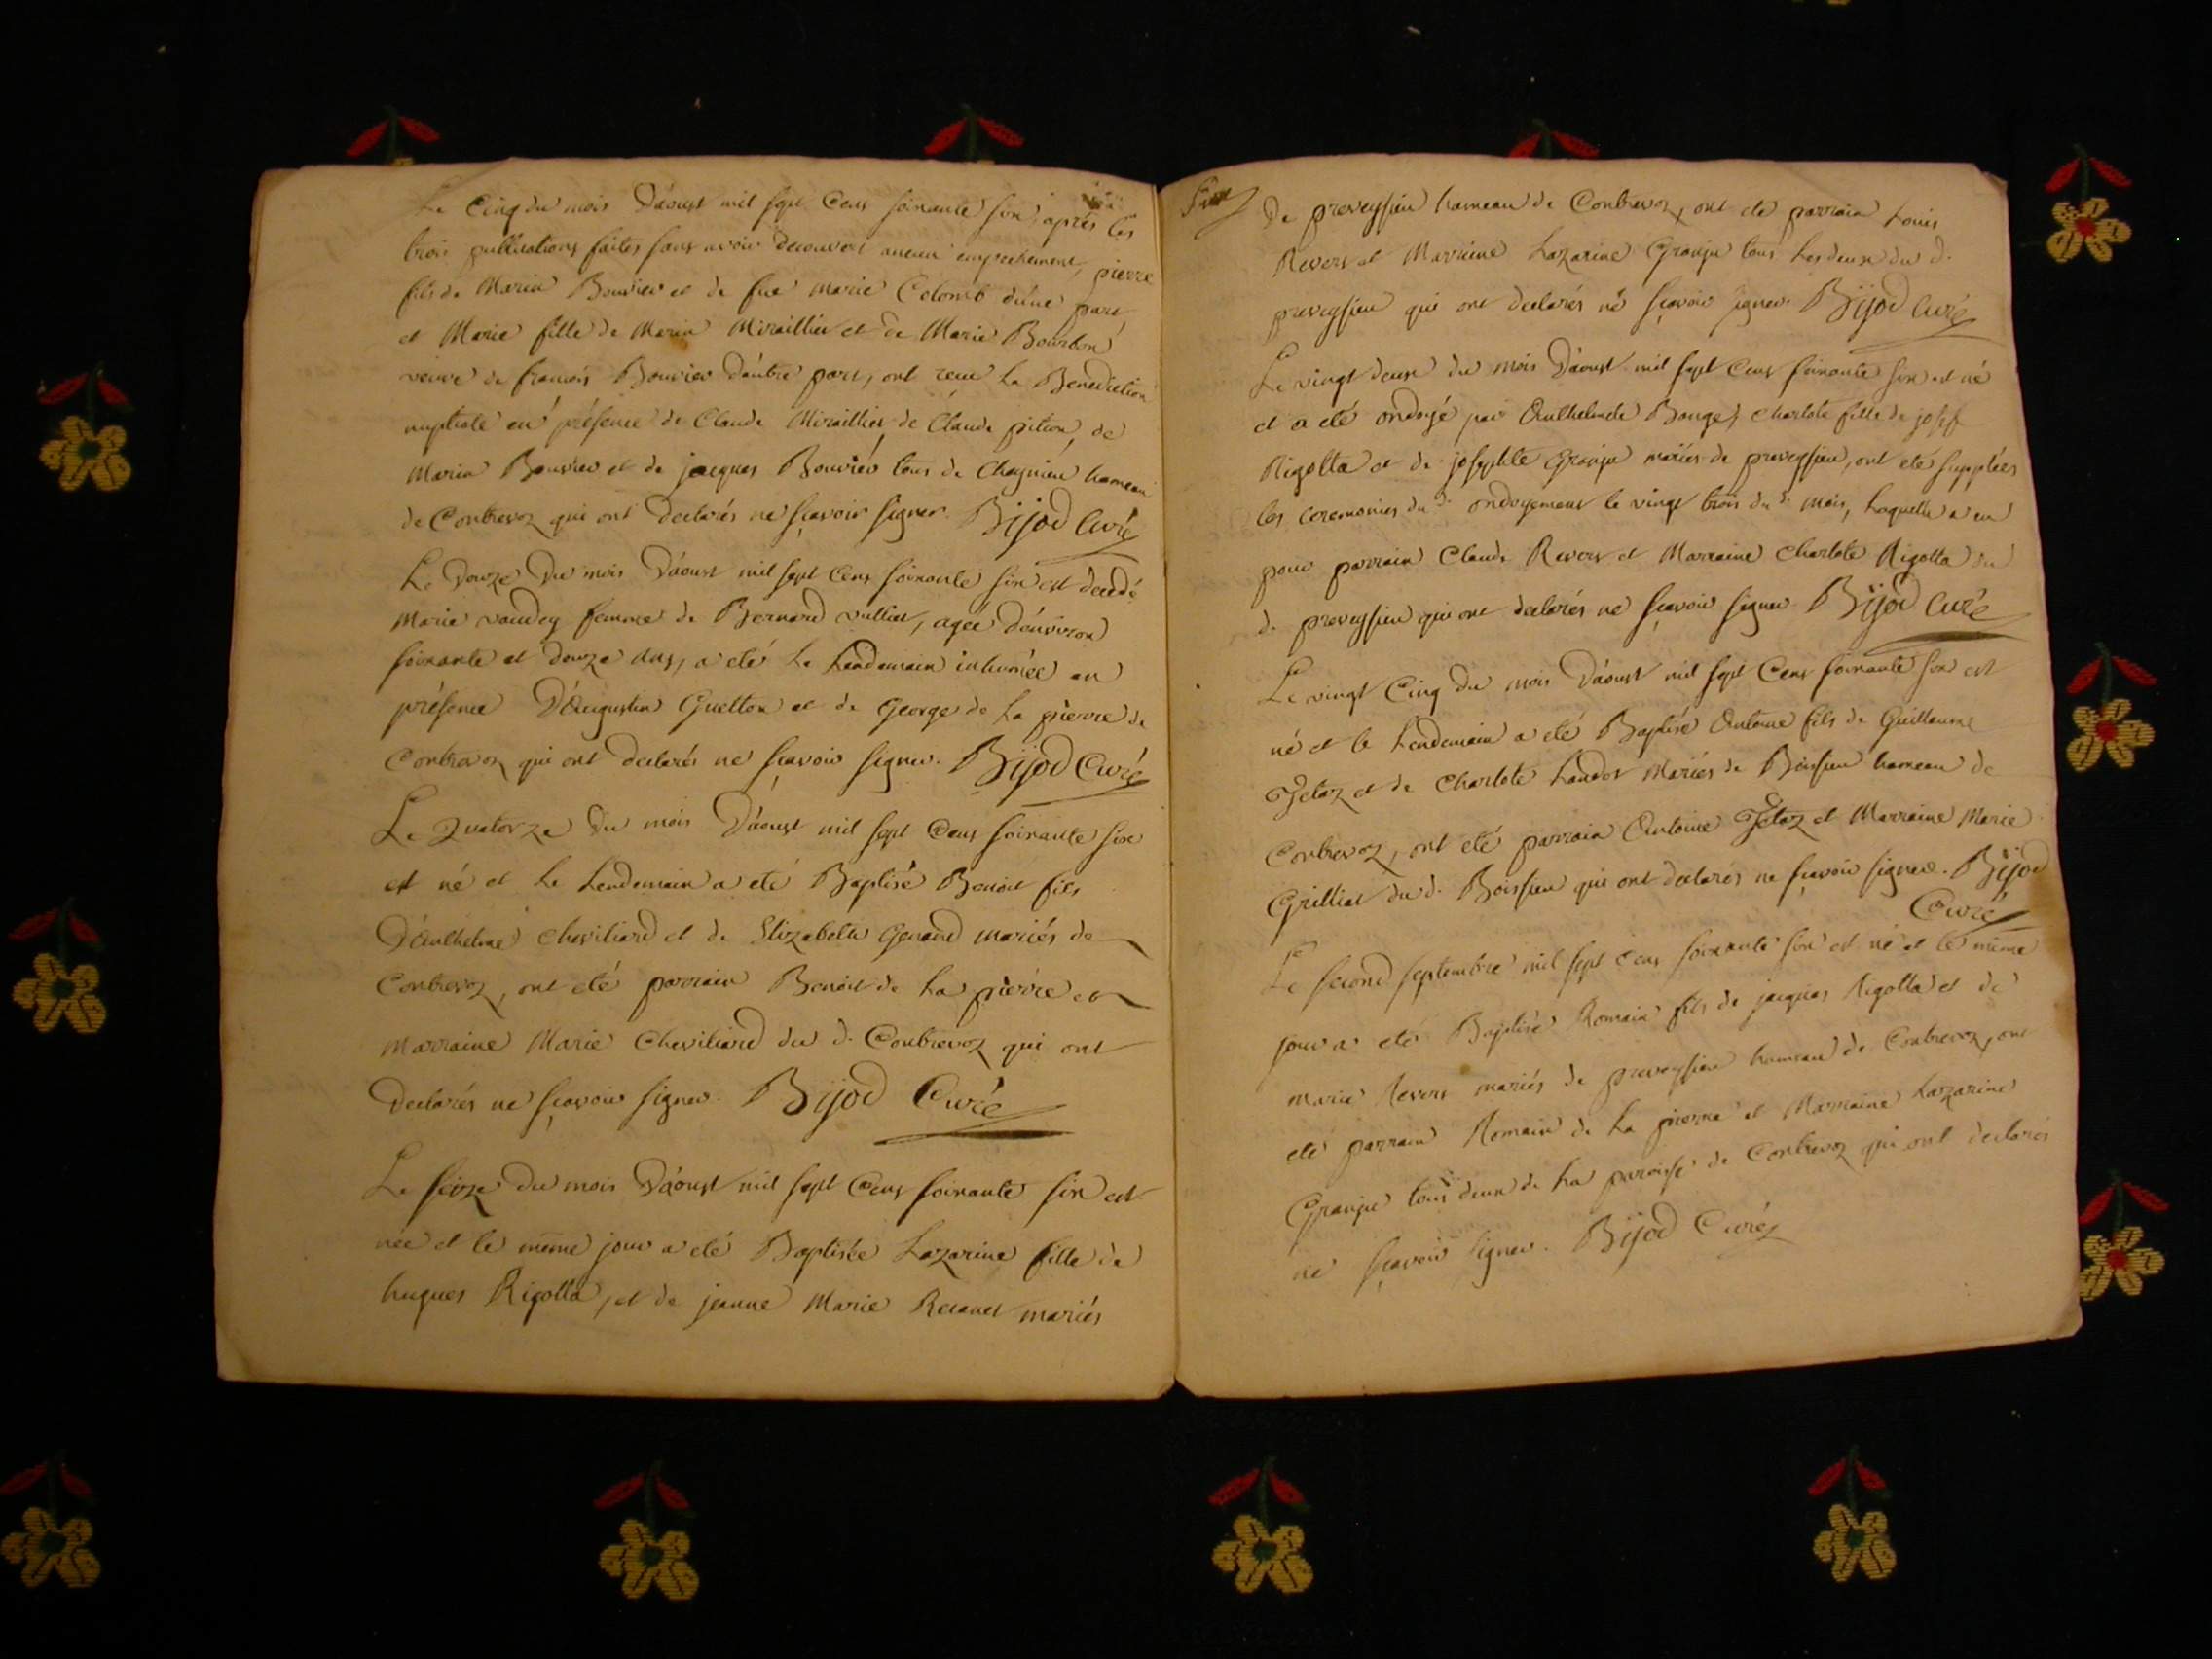 Le Cinq du mois D'aoust mil sept Cens soixante six, aprés les
trois publications faites sans avoir decouvert aucun empechement, pierre
fils de Marin Bouvier et de fue marie Colomb d'une part
et Marie fille de Marin Miraillier et de Marie Bourbon
veuve de francois Bouvier d'autre part, ont recu la Benediction
nuptiale en présence de Claude Miraillier de Claude pition, de
Marin Bouvier et de jacques Bouviér tous de Chognieu hameau
de Contrevoz qui ont declarés ne sçavoir signer. Bijod Curé
Le Douze Du mois D'aoust mil sept Cens soixante six est decedé
Marie vaudey femme de Bernard vulliat, agée d'environ
soixante et douze ans, a eté le Lendemain inhumée en
présence D'Augustin Guetton et de George de La pierre de
Contrevoz qui ont declarés ne sçavoir signer. Bijod Curé
Le Quatorze Du mois D'aoust mil sept Cens soixante six
est né et le Lendemain a eté Baptisé Benoit fils
D'Anthelme Cheviliard et de Elizabeth Genand mariés de
Contrevoz, ont eté parrain Benoit de La pierre et
marraine Marie Cheviliard du d. Contrevoz qui ont
Declarés ne sçavoir signer. Bijod Curé
Le seize Du mois D'aoust mil sept Cens soixante six est
née et le même jour a eté Baptisée Lazarine fille de
hugues Rigolla, et de jeanne Marie mariés
De preveyssieu hameau de Contrevoz, ont eté parrain Louis
Revers et Marraine Lazarine Granju tous Les deux du d.
preveyssieu qui ont declarés ne sçavoir signer Bijod Curé
Le vingt deux du mois D'aoust mil sept Cens soixante six est né
et a eté ondoyé par Anthelmele Bouge, Charlote fille de josef
Rigolla et de josephte Granju mariés de preveyssieu, ont eté supplées
les ceremonies du d. ondoyement le vingt trois du d. mois, Laquelle a eu
pour parrain Claude Revers et Marraine Charlote Rigolla du
d. preveyssieu qui ont declarés ne sçavoir signer Bijod Curé
Le vingt Cinq du mois D'aoust mil sept Cens soixante six est
né et le Lendemain a eté Baptisé Antoine fils de Guillaume
Jetaz et de Charlote Laudet Mariés de Boissieu hameau de
Contrevoz, ont eté parrain Antoine Jetaz et Marraine Marie
Grilliat du d. Boissieu qui ont declarés ne sçavoir signer. Bijod
Curé
Le second septembre mil sept cens soixante six est né et le même
jour a eté Baptisé Romain fils de jacques Rigolla et de
marie Revers mariés de preveyssieu hameau de Contrevoz, ont
eté parrain Romain de La pierre et Marraine Lazarine
Granju tous deux de La paroisse de Contrevoz qui ont declarés
ne sçavoir signer. Bijod Curé